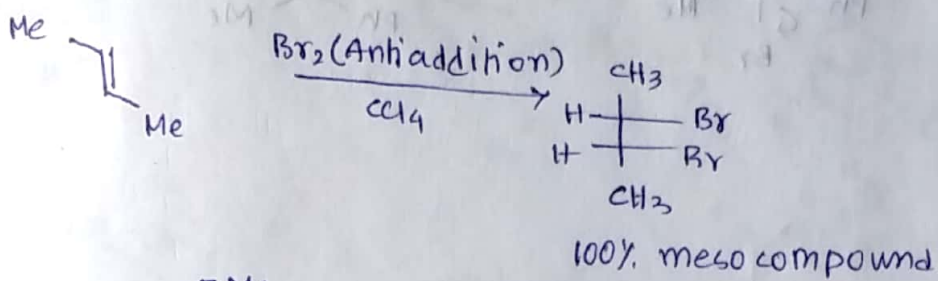 Me
Me
Br₂ (Anti addition)
CCl4
CH3
H Br
H Br
CH3
100% meso compound